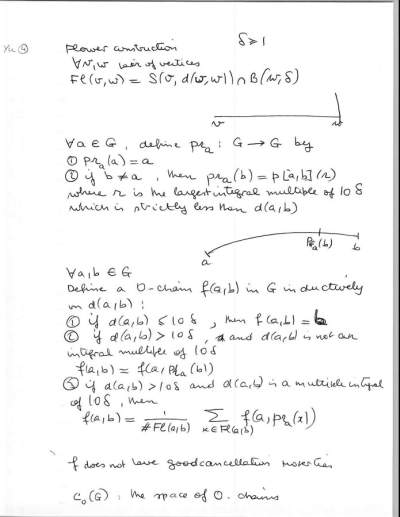 Yu ④
Flower construction δ ≥ 1
∀ v, w pair of vertices
Fl(v,w) = S(v, d(v,w)) ∩ B(w, δ)
v w
∀ a ∈ G, define pr_a : G → G by
① pr_a(a) = a
② if b ≠ a, then pr_a(b) = p[a,b](r)
where r is the largest integral multiple of 10 δ
which is strictly less than d(a,b)
a pr_a(b) b
∀ a,b ∈ G
Define a 0-chain f(a,b) in G inductively
on d(a,b) :
① if d(a,b) ≤ 10 δ, then f(a,b) = b
② if d(a,b) > 10 δ, and d(a,b) is not an
integral multiple of 10 δ
f(a,b) = f(a, pr_a(b))
③ if d(a,b) > 10 δ and d(a,b) is a multiple integral
of 10 δ, then
f(a,b) = 1/#Fl(a,b) ∑_{x ∈ Fl(a,b)} f(a, pr_a(x))
f does not have good cancellation properties
C₀(G) : the space of 0-chains